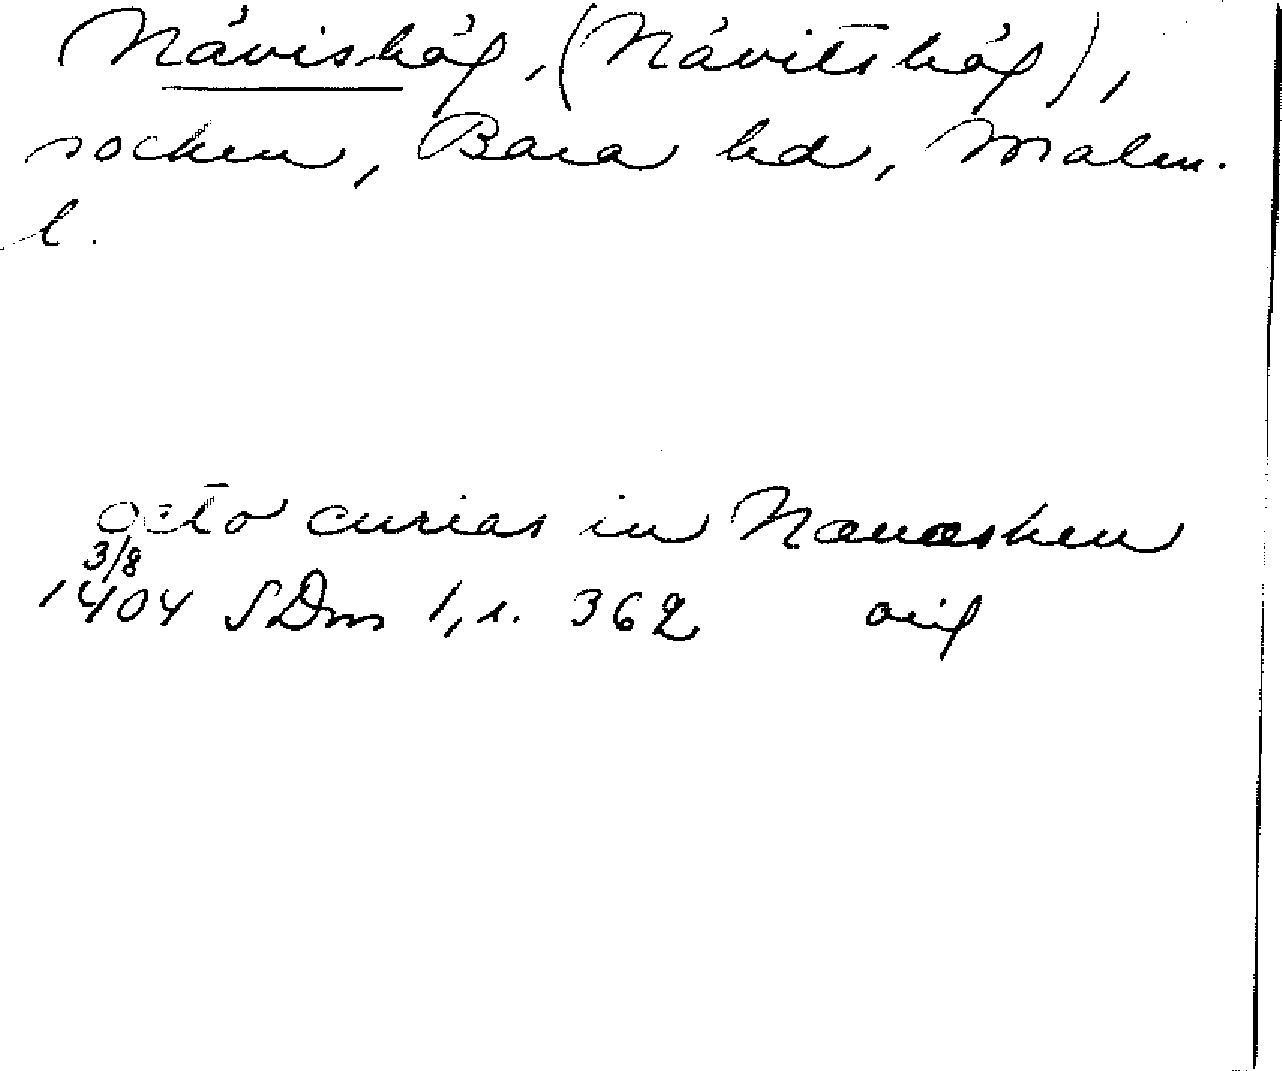 Nävishög, (Nävitshög),
socken, Bara hd, Malm.
l.
octo curias in
3/8
1404 SDns 1, s. 362 orig